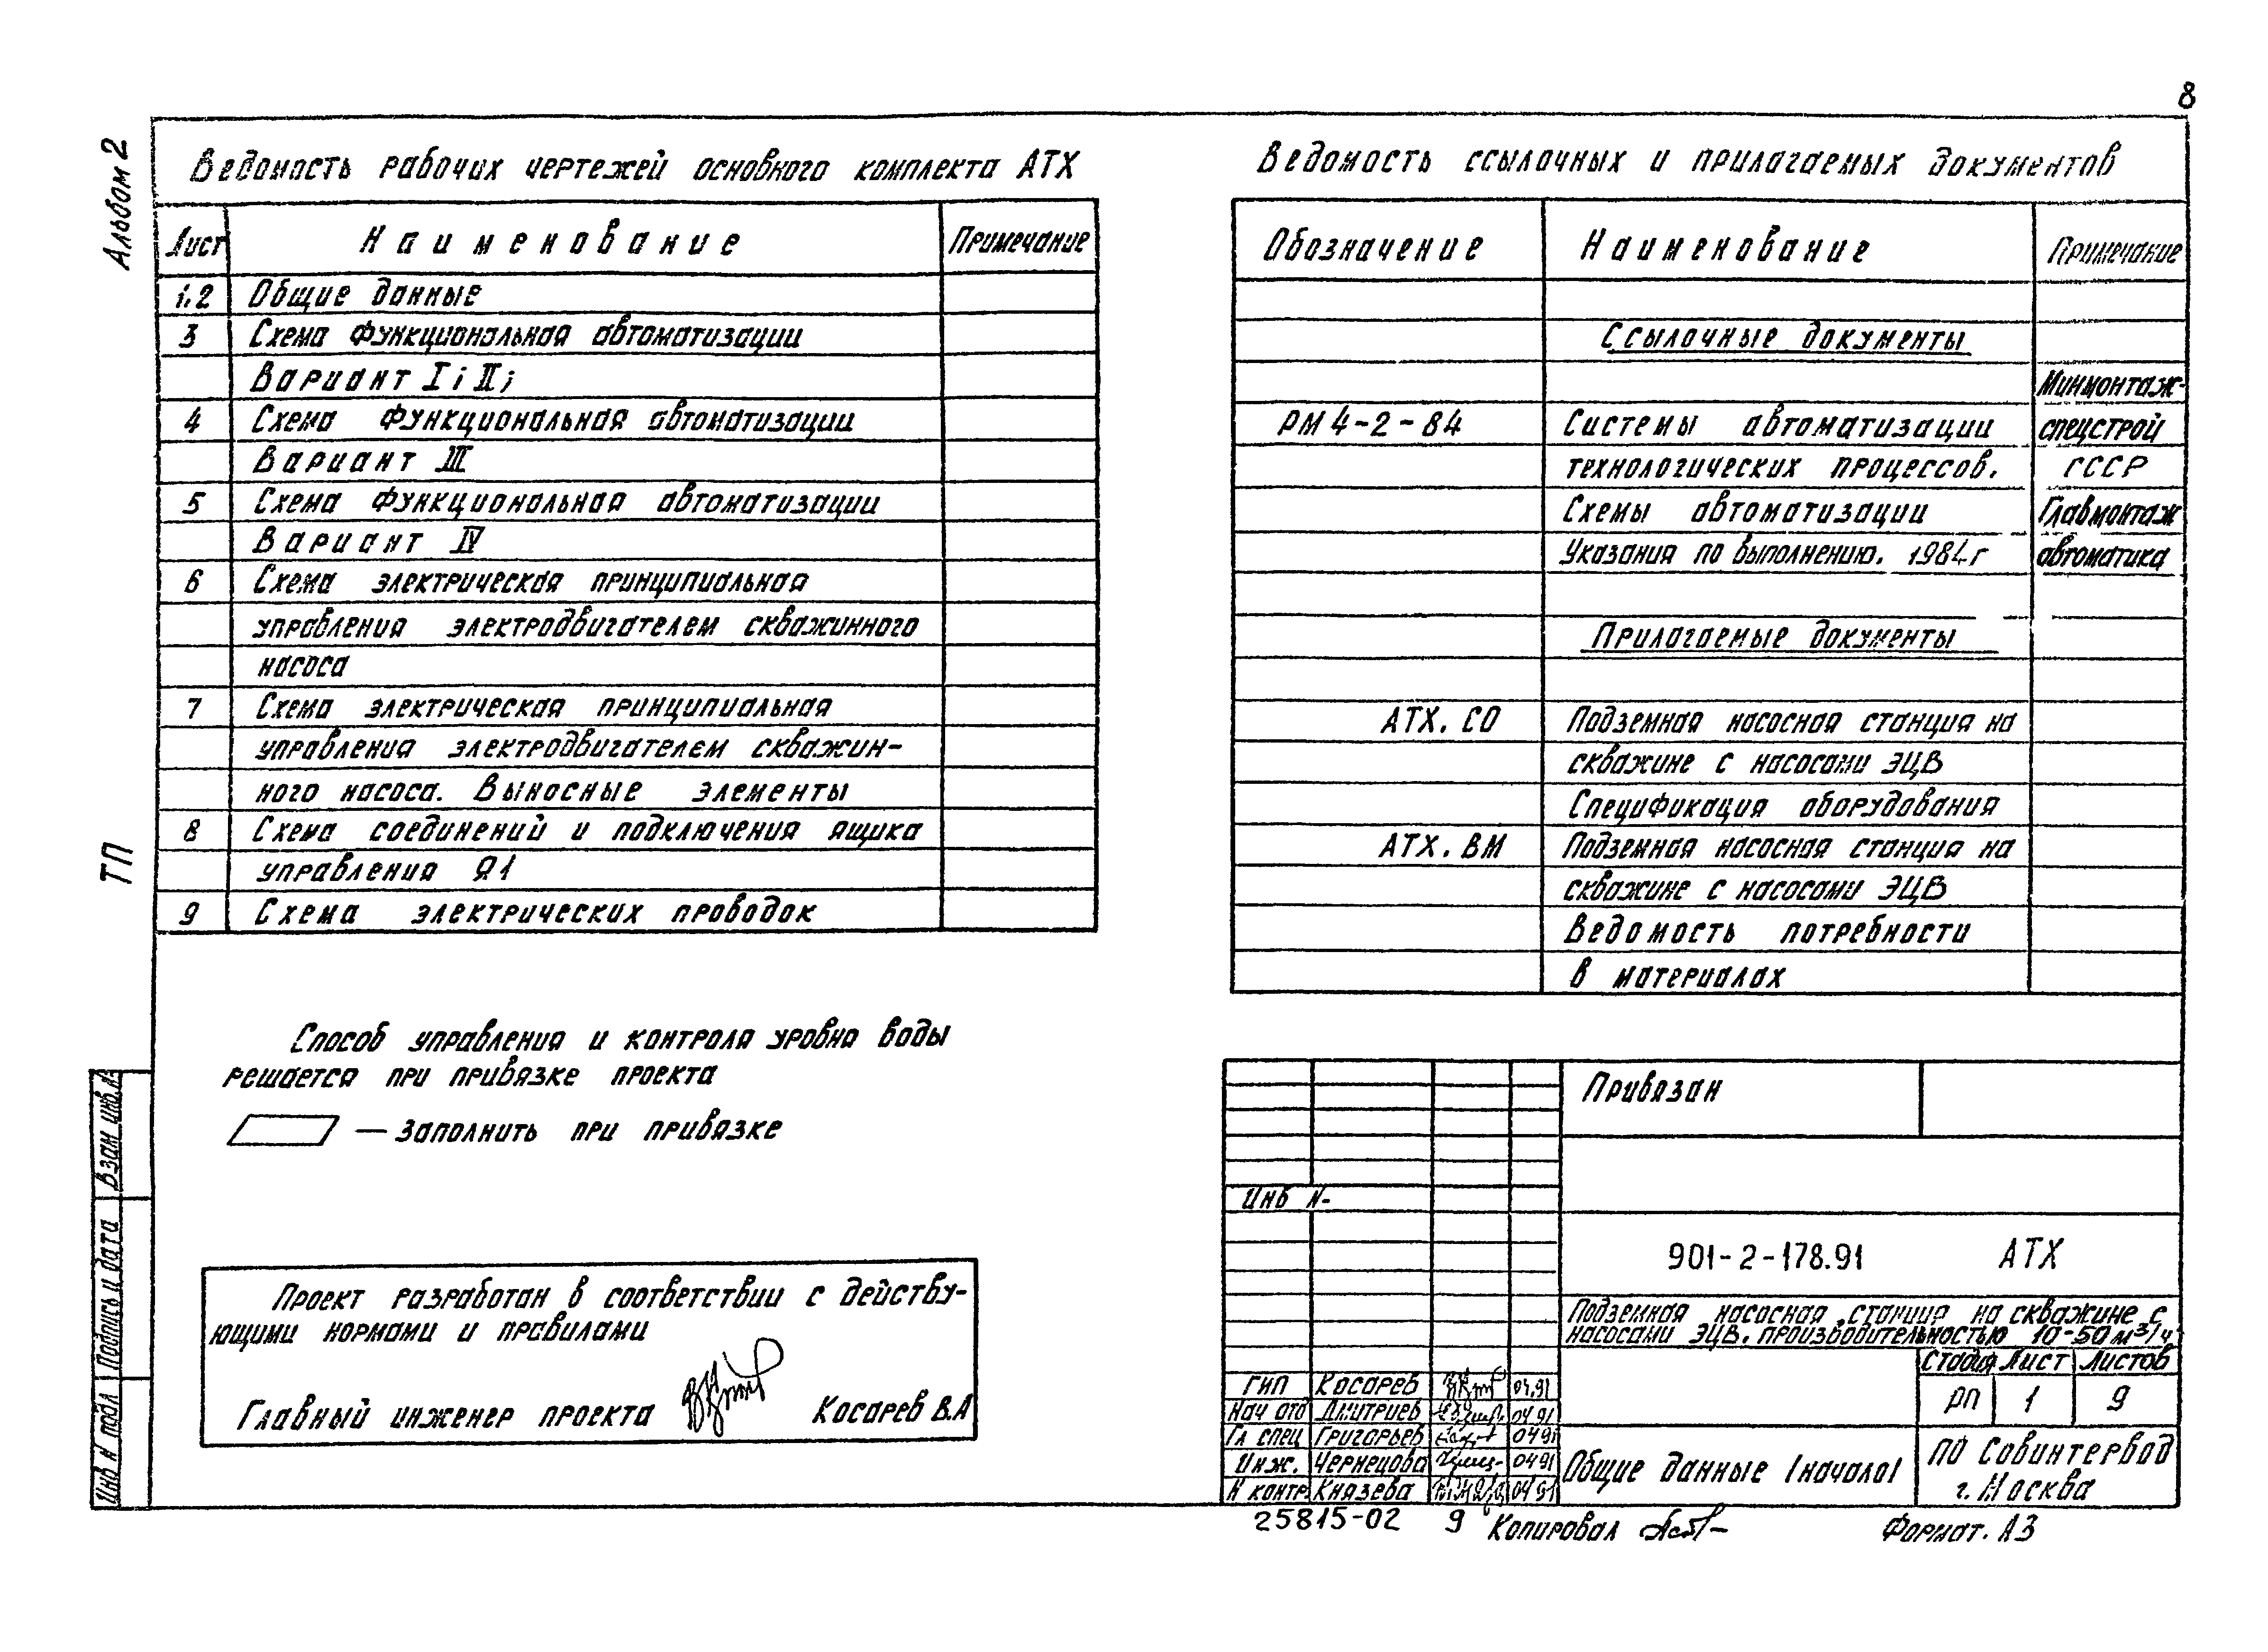 8
Альбом 2
ТП
Ведомость рабочих чертежей основного комплекта АТХ
Лист Наименование Примечание
1.2 Общие данные
3 Схема функциональная автоматизации
Вариант I; II;
4 Схема функциональная автоматизации
Вариант III
5 Схема функциональная автоматизации
Вариант IV
6 Схема электрическая принципиальная
управления электродвигателем скважинного
насоса
7 Схема электрическая принципиальная
управления электродвигателем скважин-
ного насоса. Выносные элементы
8 Схема соединений и подключения ящика
управления Я1
9 Схема электрических проводок
Ведомость ссылочных и прилагаемых документов
Обозначение Наименование Примечание
Ссылочные документы
Минмонтаж-
РМ 4-2-84 Системы автоматизации спецстрой
технологических процессов. СССР
Схемы автоматизации Главмонтаж
Указания по выполнению. 1984г автоматика
Прилагаемые документы
АТХ.СО Подземная насосная станция на
скважине с насосами ЭЦВ
Спецификация оборудования
АТХ.ВМ Подземная насосная станция на
скважине с насосами ЭЦВ
Ведомость потребности
в материалах
Способ управления и контроля уровня воды
решается при привязке проекта
— заполнить при привязке
Проект разработан в соответствии с действу-
ющими нормами и правилами
Главный инженер проекта Косарев В.А
Взам инв. №
Подпись и дата
Инв N подл
Привязан
Инв N-
901-2-178.91 АТХ
Подземная насосная станция на скважине с
насосами ЭЦВ. производительностью 10-50 м³/ч
Стадия Лист Листов
РП 1 9
ГИП Косарев 04.91
Нач отд Дмитриев 04 91
Гл спец Григорьев 04 91
Инж. Чернецова 04 91
Н контр. Князева 04 91
Общие данные (начало)
ПО Совинтервод
г. Москва
25815-02 9 Копировал Формат. А3